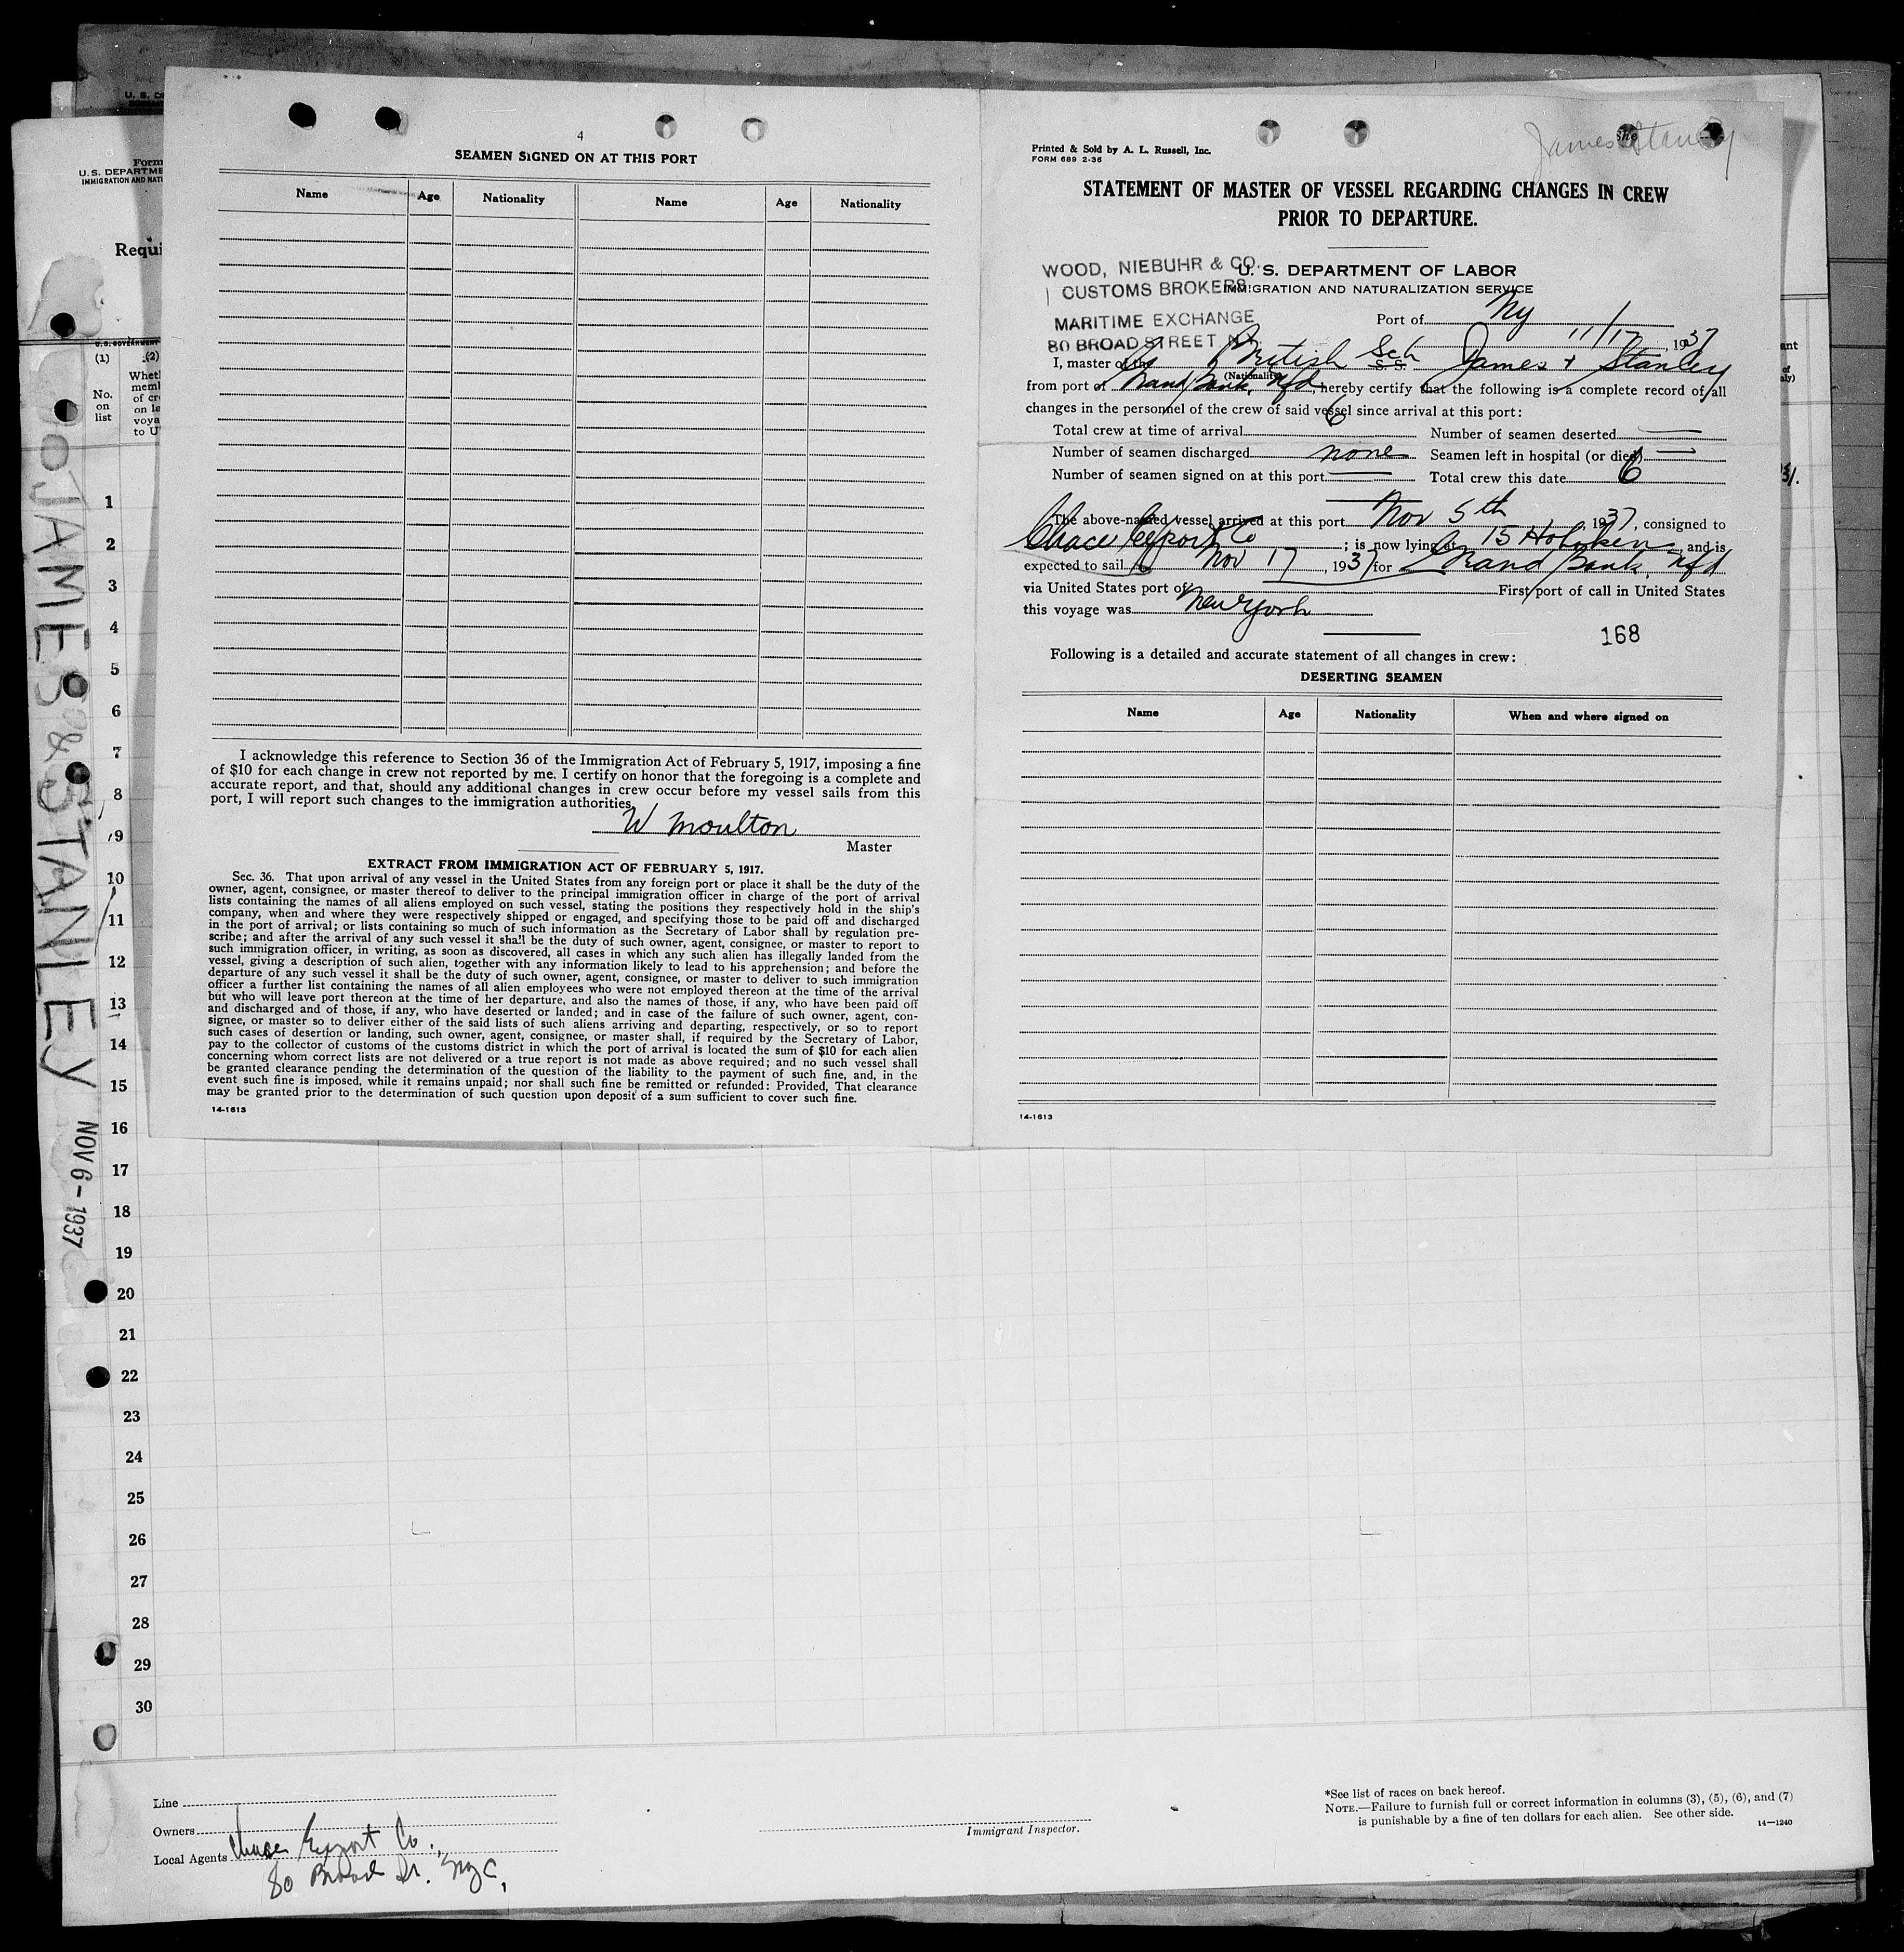 4
SEAMEN SIGNED ON AT THIS PORT
Name Age Nationality Name Age Nationality
I acknowledge this reference to Section 36 of the Immigration Act of February 5, 1917, imposing a fine
of $10 for each change in crew not reported by me. I certify on honor that the foregoing is a complete and
accurate report, and that, should any additional changes in crew occur before my vessel sails from this
port, I will report such changes to the immigration authorities.
W Moulton
Master
EXTRACT FROM IMMIGRATION ACT OF FEBRUARY 5, 1917.
Sec. 36. That upon arrival of any vessel in the United States from any foreign port or place it shall be the duty of the
owner, agent, consignee, or master thereof to deliver to the principal immigration officer in charge of the port of arrival
lists containing the names of all aliens employed on such vessel, stating the positions they respectively hold in the ship's
company, when and where they were respectively shipped or engaged, and specifying those to be paid off and discharged
in the port of arrival; or lists containing so much of such information as the Secretary of Labor shall by regulation pre-
scribe; and after the arrival of any such vessel it shall be the duty of such owner, agent, consignee, or master to report to
such immigration officer, in writing, as soon as discovered, all cases in which any such alien has illegally landed from the
vessel, giving a description of such alien, together with any information likely to lead to his apprehension; and before the
departure of any such vessel it shall be the duty of such owner, agent, consignee, or master to deliver to such immigration
officer a further list containing the names of all alien employees who were not employed thereon at the time of the arrival
but who will leave port thereon at the time of her departure, and also the names of those, if any, who have been paid off
and discharged and of those, if any, who have deserted or landed; and in case of the failure of such owner, agent, con-
signee, or master so to deliver either of the said lists of such aliens arriving and departing, respectively, or so to report
such cases of desertion or landing, such owner, agent, consignee, or master shall, if required by the Secretary of Labor,
pay to the collector of customs of the customs district in which the port of arrival is located the sum of $10 for each alien
concerning whom correct lists are not delivered or a true report is not made as above required; and no such vessel shall
be granted clearance pending the determination of the question of the liability to the payment of such fine, and, in the
event such fine is imposed, while it remains unpaid; nor shall such fine be remitted or refunded: Provided, That clearance
may be granted prior to the determination of such question upon deposit of a sum sufficient to cover such fine.
14-1613
James Stanley
Printed & Sold by A. L. Russell, Inc.
FORM 689 2-36
STATEMENT OF MASTER OF VESSEL REGARDING CHANGES IN CREW
PRIOR TO DEPARTURE.
WOOD, NIEBUHR & CO.
CUSTOMS BROKERS
MARITIME EXCHANGE
80 BROAD STREET N.Y.
U. S. DEPARTMENT OF LABOR
IMMIGRATION AND NATURALIZATION SERVICE
Port of Ny
11/17, 1937
I, master of the British Sch S S James & Stanley
(Nationality)
from port of Grand Bank, Nfd, hereby certify that the following is a complete record of all
changes in the personnel of the crew of said vessel since arrival at this port:
Total crew at time of arrival 6 Number of seamen deserted —
Number of seamen discharged none Seamen left in hospital (or died) —
Number of seamen signed on at this port — Total crew this date 6
The above-named vessel arrived at this port Nov 5th, 1937, consigned to
Chace Export Co; is now lying at 15 Hoboken and is
expected to sail Nov 17, 1937 for Grand Bank, Nfd
via United States port of First port of call in United States
this voyage was New York
168
Following is a detailed and accurate statement of all changes in crew:
DESERTING SEAMEN
Name Age Nationality When and where signed on
14-1613
Form
U. S. DEPARTME
IMMIGRATION AND NATI
Requi
U.S. GOVERNMENT
(1) (2)
No.
on
list
Wheth
meml
of cr
on la
voya
to U
JAMES & STANLEY
NOV 6 - 1937
1
2
3
4
5
6
7
8
9
10
11
12
13
14
15
16
17
18
19
20
21
22
23
24
25
26
27
28
29
30
Line
Owners
Local Agents Chace Export Co.,
80 Broad St. NYC,
Immigrant Inspector.
*See list of races on back hereof.
NOTE.—Failure to furnish full or correct information in columns (3), (5), (6), and (7)
is punishable by a fine of ten dollars for each alien. See other side.
14—1240